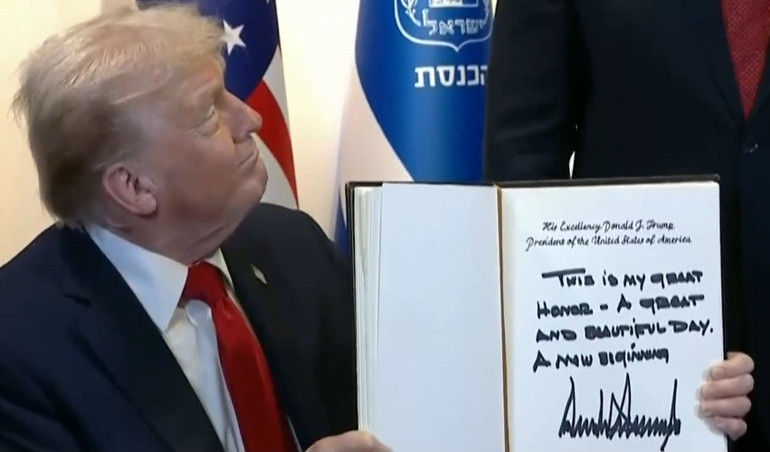 ישראל
הכנסת
His Excellency Donald J. Trump
President of the United States of America
THIS IS MY GREAT
HONOR - A GREAT
AND BEAUTIFUL DAY.
A NEW BEGINNING